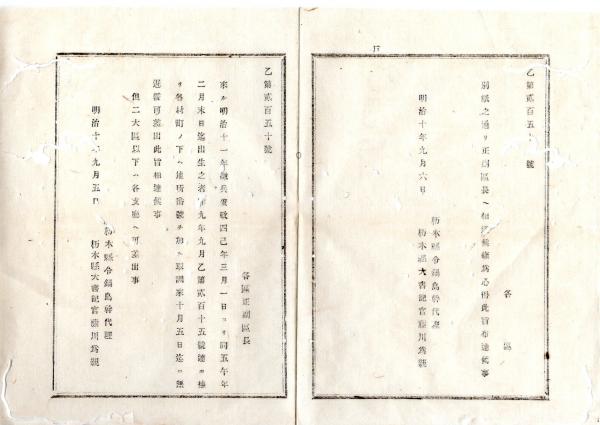 乙第貳百五十 號
各 區
別紙之通リ正副區長ヘ相達候條爲心得此旨布達候事
明治十年九月六日
栃木縣令鍋島幹代理
栃木縣大書記官藤川爲親
乙第貳百五十號
各區正副區長
來ル明治十一年徵兵 四己年三月一日ヨリ同五午年
二月末日迄出生之者 九年九月乙第貳百十五號達ノ
各村町ノ下ヘ地所番號ヲ加ヘ取調來十月五日迄ニ無
遲 可差出此旨相達候事
但二大區以下ハ各支廳ヘ可差出事
明治十年九月五日
栃木縣令鍋島幹代理
栃木縣大書記官藤川爲親